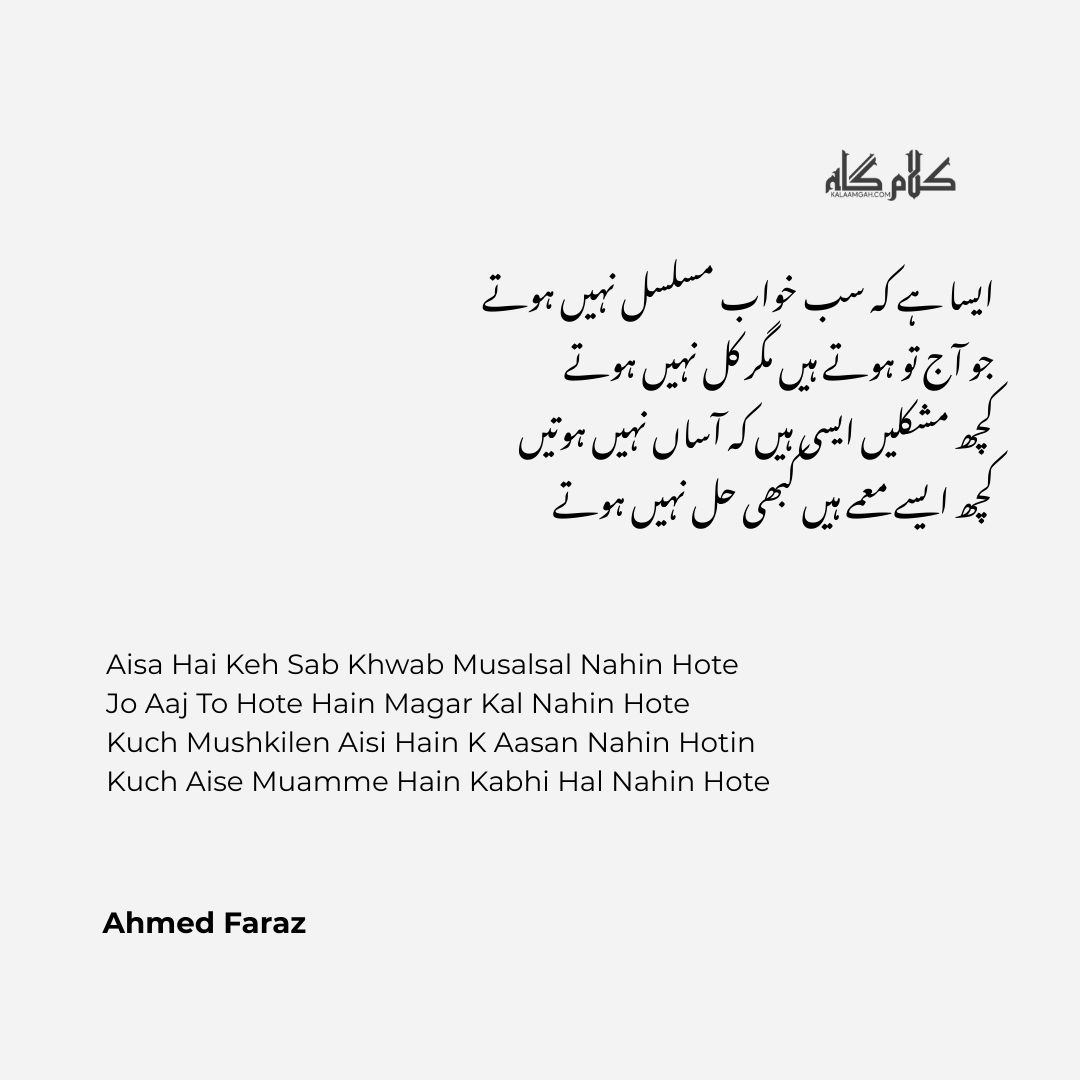 کلام گاہ
KALAAMGAH.COM
ایسا ہے کہ سب خواب مسلسل نہیں ہوتے
جو آج تو ہوتے ہیں مگر کل نہیں ہوتے
کچھ مشکلیں ایسی ہیں کہ آساں نہیں ہوتیں
کچھ ایسے معمے ہیں کبھی حل نہیں ہوتے
Aisa Hai Keh Sab Khwab Musalsal Nahin Hote
Jo Aaj To Hote Hain Magar Kal Nahin Hote
Kuch Mushkilen Aisi Hain K Aasan Nahin Hotin
Kuch Aise Muamme Hain Kabhi Hal Nahin Hote
Ahmed Faraz